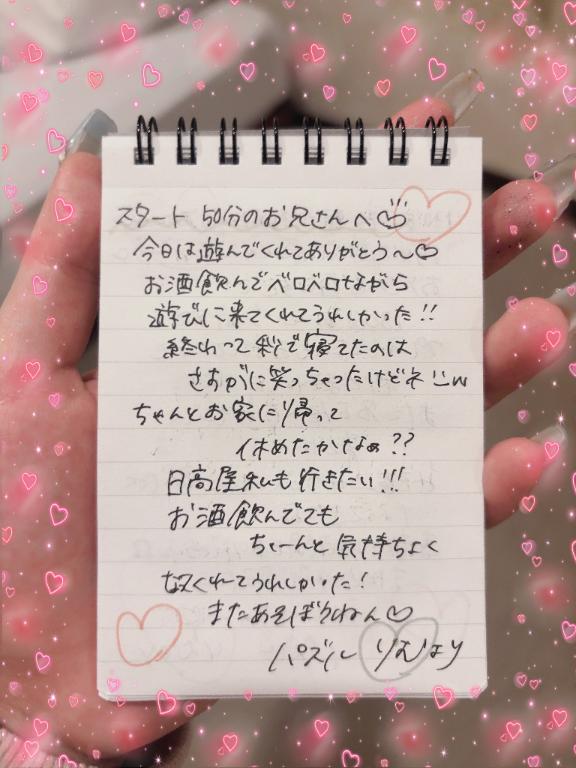 スタート 50分のお兄さんへ♡
今日は遊んでくれてありがとう〜♡
お酒飲んでベロベロながら
遊びに来てくれてうれしかった!!
終わって秒で寝てたのは
さすがに笑っちゃったけどネw
ちゃんとお家に帰って
休めたかなぁ??
日高屋私も行きたい!!!
お酒飲んでても
ちゃーんと気持ちよく
なってくれてうれしかった!
またあそぼうねん♡
パズル りむ